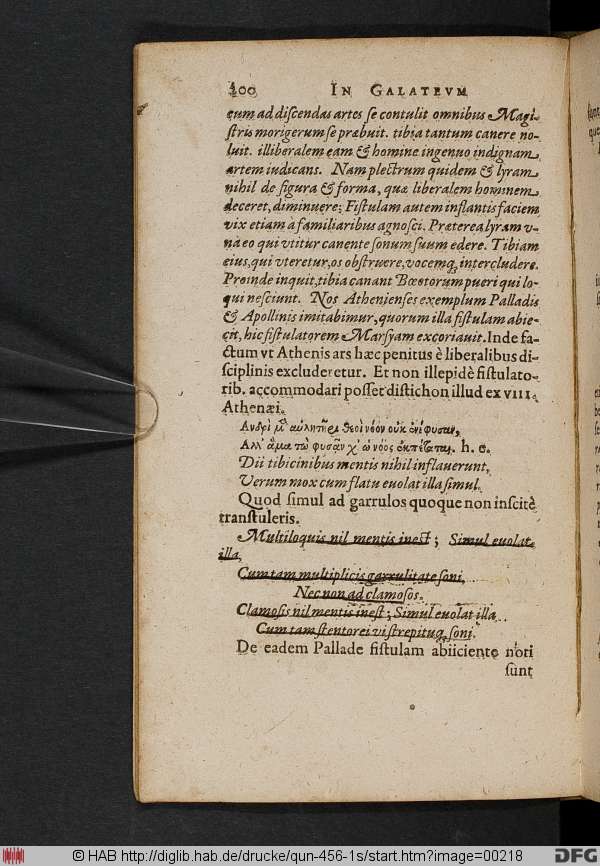 200 IN GALATEVM
cum ad discendas artes se contulit omnibus Magi-
stris morigerum se præbuit. tibia tantum canere no-
luit. illiberalem eam & homine ingenuo indignam
artem iudicans. Nam plectrum quidem & lyram
nihil de figura & forma, quæ liberalem hominem
deceret, diminuere; Fistulam autem inflantis faciem
vix etiam à familiaribus agnosci. Præterea lyram v-
nà eo qui vtitur canente sonum suum edere. Tibiam
eius, qui vteretur, os obstruere, vocemq́; intercludere.
Proinde inquit, tibia canant Bœotorum pueri qui lo-
qui nesciunt. Nos Athenienses exemplum Palladis
& Apollinis imitabimur, quorum illa fistulam abie-
cit, hic fistulatorem Marsyam excoriauit. Inde fa-
ctum vt Athenis ars hæc penitus è liberalibus di-
sciplinis excluderetur. Et non illepidè fistulato-
rib. accommodari posset distichon illud ex VIII.
Athenæi.
Ανδρὶ μὲν αὐλητῆρι θεοὶ νόον οὐκ ἐνέφυσαν,
Αλλ' ἅμα τῷ φυσᾶν χ' ὠ νόος ἐκπέταται. h. e.
Dii tibicinibus mentis nihil inflauerunt,
Verum mox cum flatu euolat illa simul.
Quod simul ad garrulos quoque non inscitè
transtuleris.
Multiloquis nil mentis inest; Simul euolat
illa,
Cum tam multiplicis garrulitate soni,
Nec non ad clamosos.
Clamosis nil mentis inest; Simul euolat illa
Cum tam stentorei vi strepituq́; soni.
De eadem Pallade fistulam abiiciente noti
sunt
© HAB http://diglib.hab.de/drucke/qun-456-1s/start.htm?image=00218
DFG